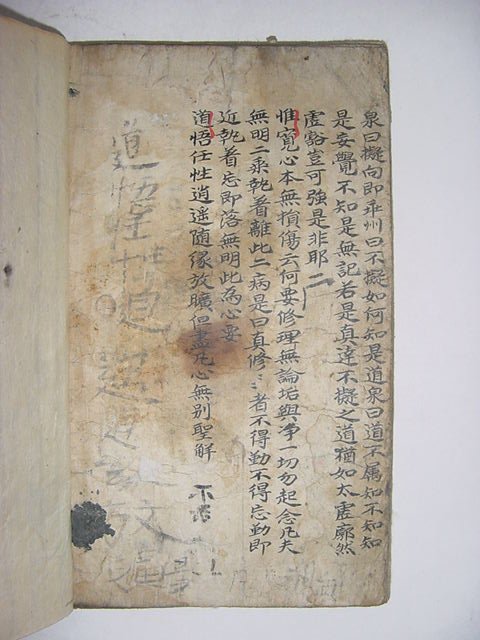 泉曰擬向即乖州曰不擬如何知是道泉曰道不属知不知知
是妄覺不知是無記若是真達不擬之道猶如太虛廓然
虛豁豈可強是非耶二
惟寬心本無損傷云何要修理無論垢與净一切勿起念凡夫
無明二乘執着離此二病是曰真修〻者不得勤不得忘勤即
近執着忘即落無明此為心要
道悟任性逍遥随缘放曠但盡凡心無别聖解
不
道悟性